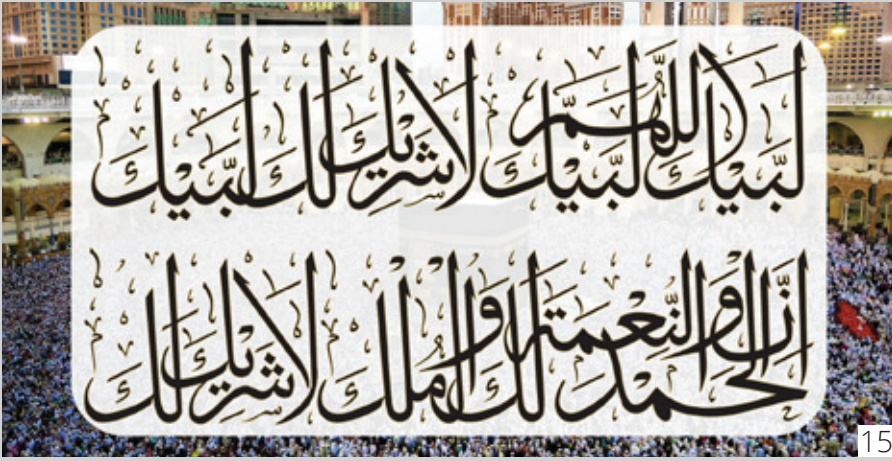 لبيك اللهم لبيك لبيك لا شريك لك لبيك
إن الحمد والنعمة لك والملك لا شريك لك
15